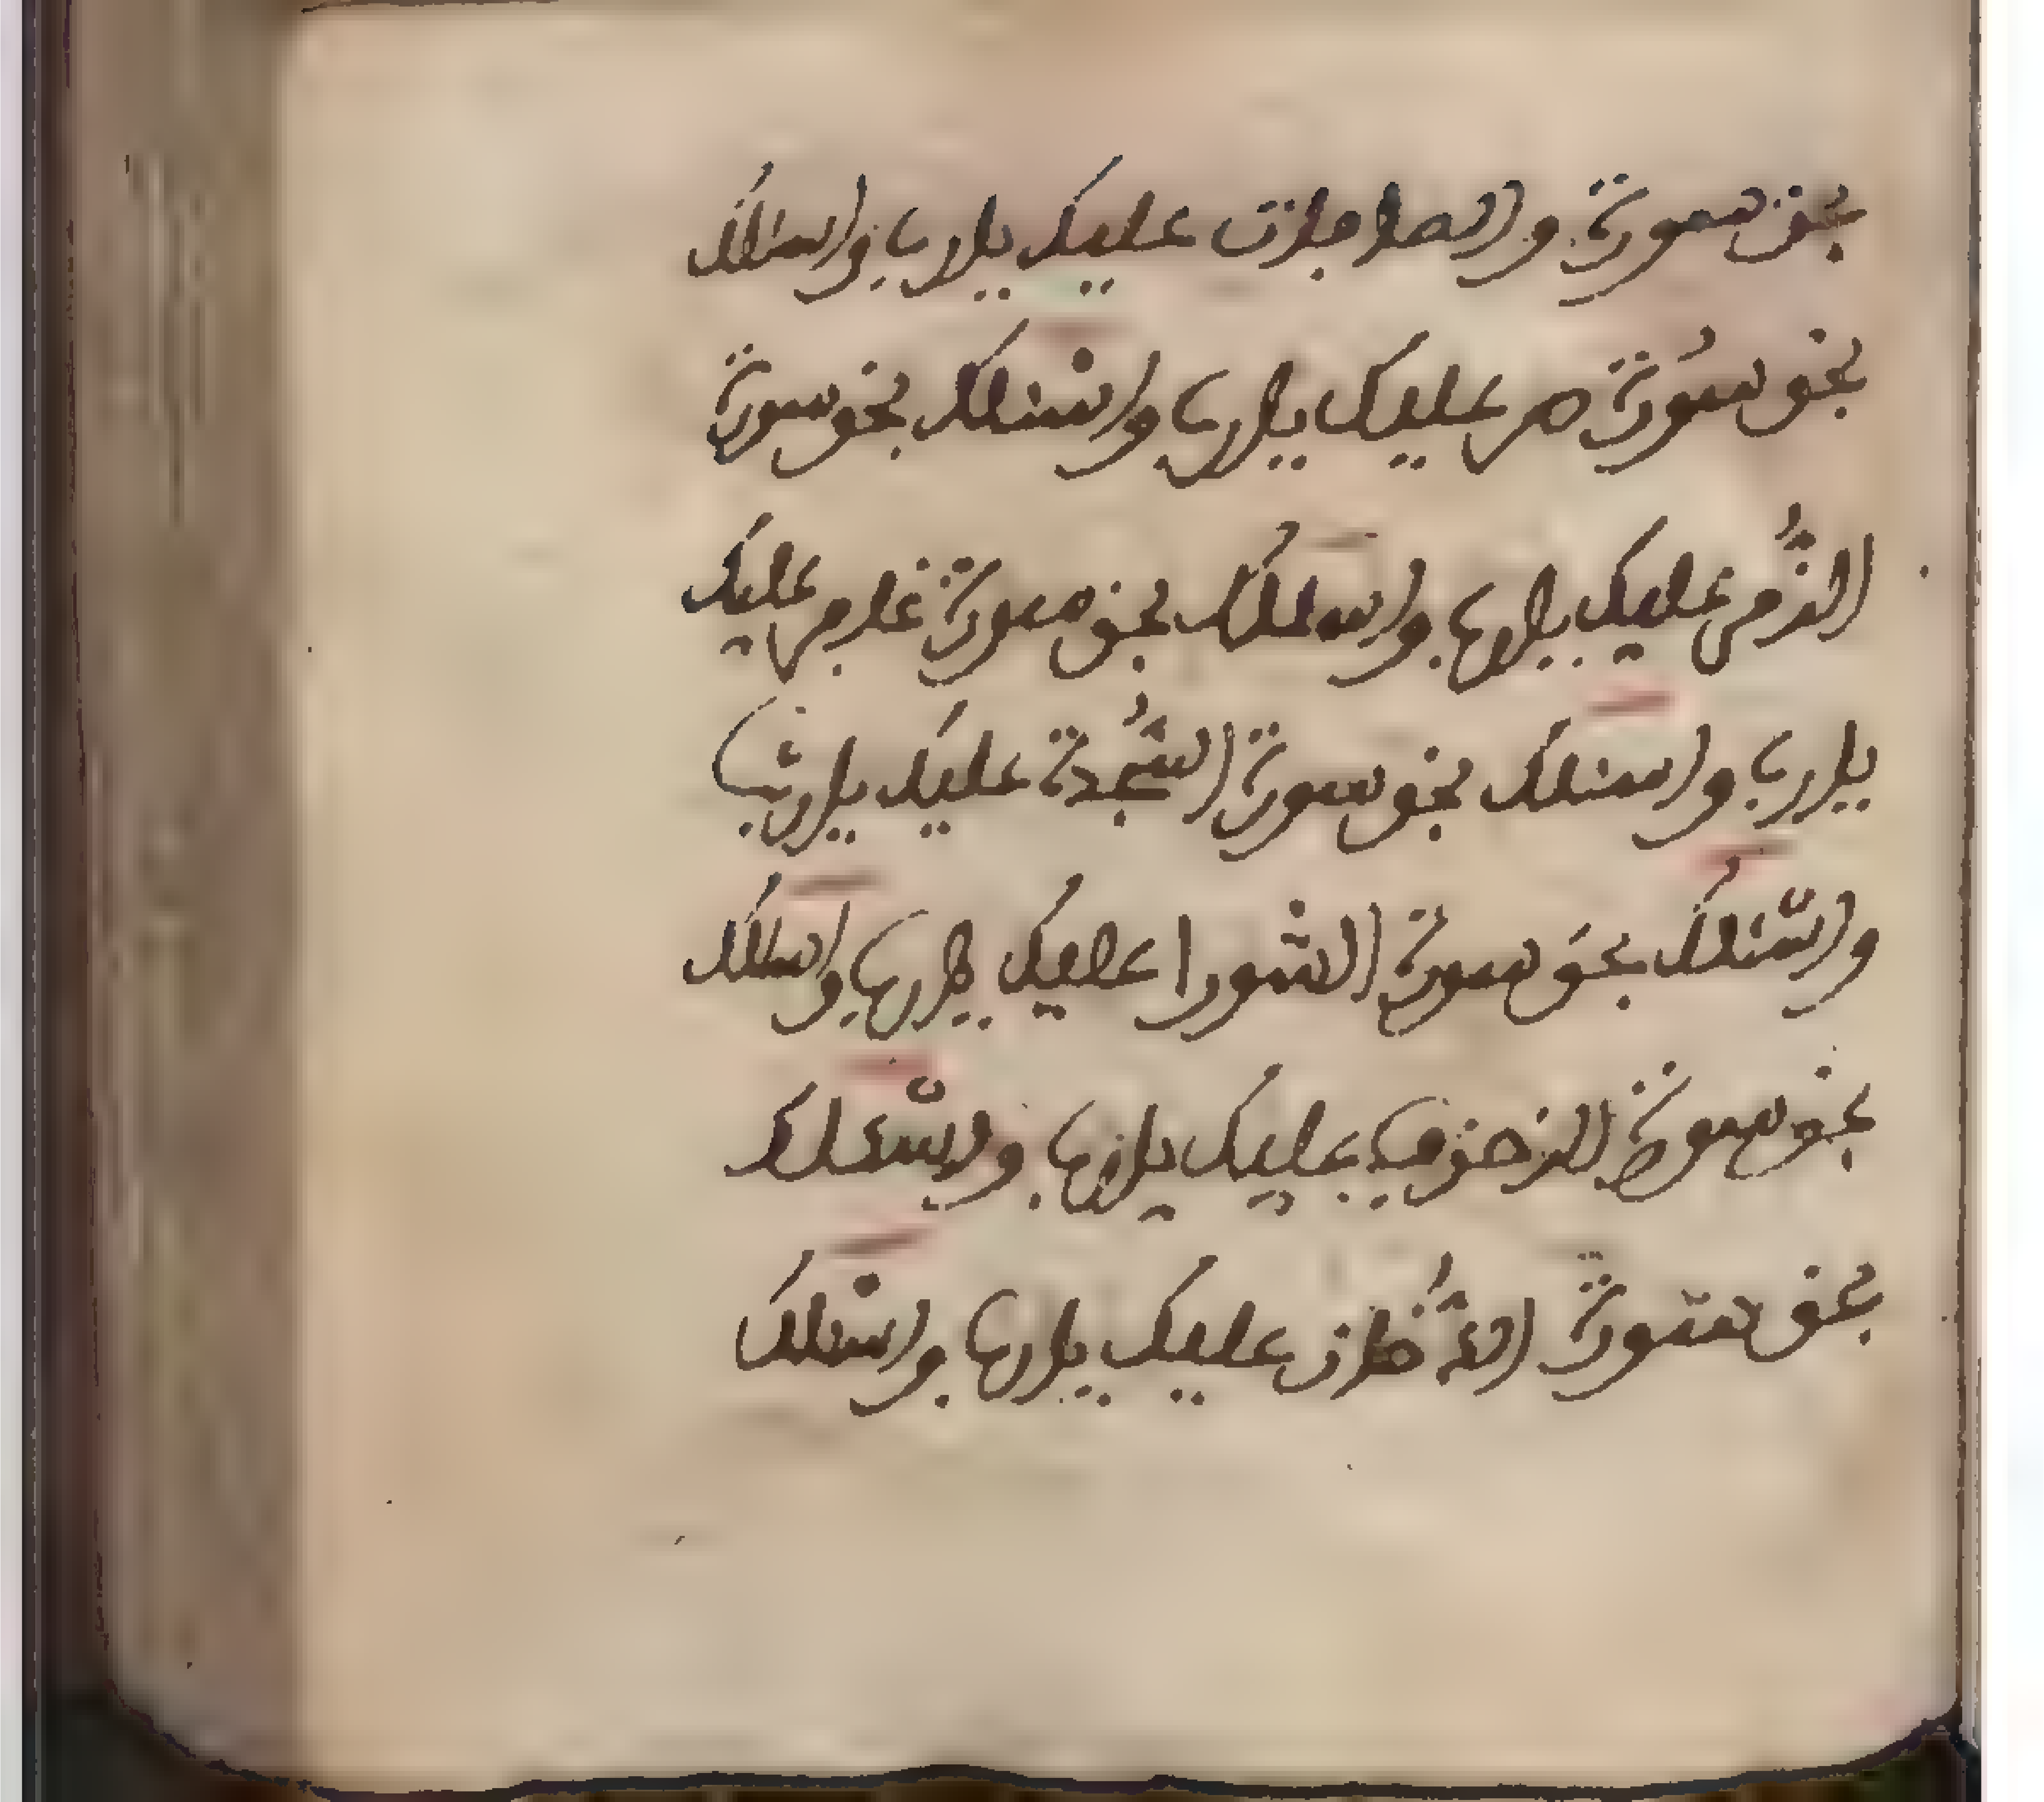 بحق سورة والصافات عليك يارب واسالك
بحق سورة ص عليك يارب واسئلك بحق سورة
الزمر عليك يارب واسئلك بحق سورة غافر عليك
يارب واسئلك بحق سورة السجدة عليك يارب
واسئلك بحق سورة الشورا عليك يارب واسئلك
بحق سورة الزخرف عليك يارب واسئلك
بحق سورة الدخان عليك يارب واسئلك